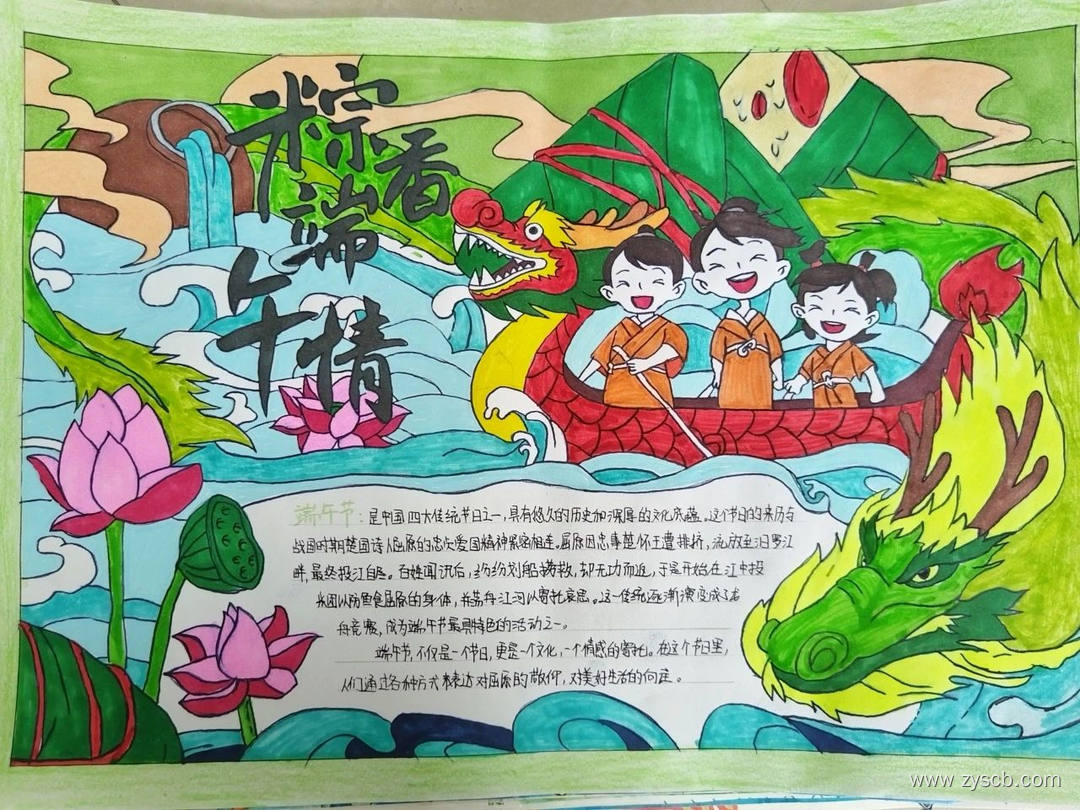 粽香
端
午情
端午节：是中国四大传统节日之一，具有悠久的历史和深厚的文化底蕴。这个节日的来历与
战国时期楚国诗人屈原的忠贞爱国精神紧密相连。屈原因忠事楚怀王遭排挤，流放至汨罗江
畔，最终投江自尽。百姓闻讯后，纷纷划船捞救，却无功而返，于是开始在江中投
米团以防鱼食屈原的身体，并荡舟江河以寄托哀思。这一传统逐渐演变成了龙
舟竞赛，成为端午节最具特色的活动之一。
端午节，不仅是一个节日，更是一个文化，一个情感的寄托。在这个节日里，
人们通过各种方式来表达对屈原的敬仰，对美好生活的向往。
www.zyscb.com